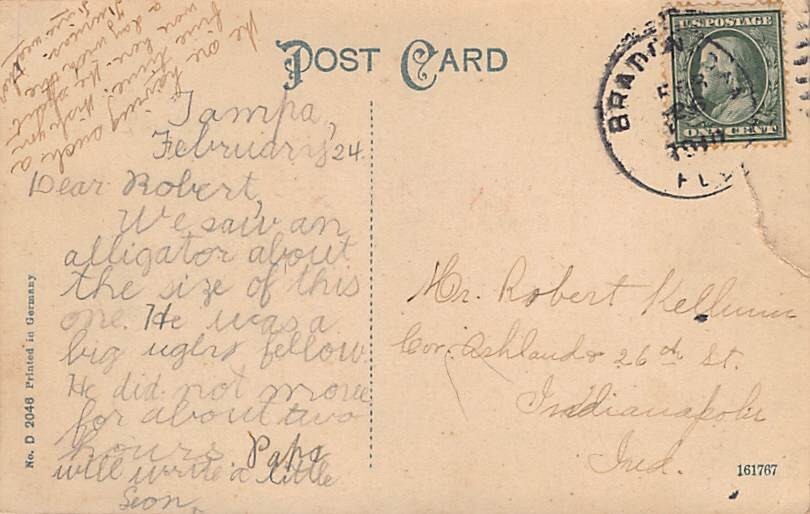 POST CARD
U.S. POSTAGE
ONE CENT
BRADEN
FEB
1910
FLA
We are having such a
fine time. Wish you
were here. We spent
a day with the
Tampa,
February 24.
Dear Robert,
We saw an
alligator about
the size of this
one. He was a
big ugly fellow.
He did not move
for about two
hours. Papa
will write a little
Seon.
Mr. Robert Kellum
Cor. Ashland & 26th St.
Indianapolis
Ind.
No. D 2046 Printed in Germany
161767